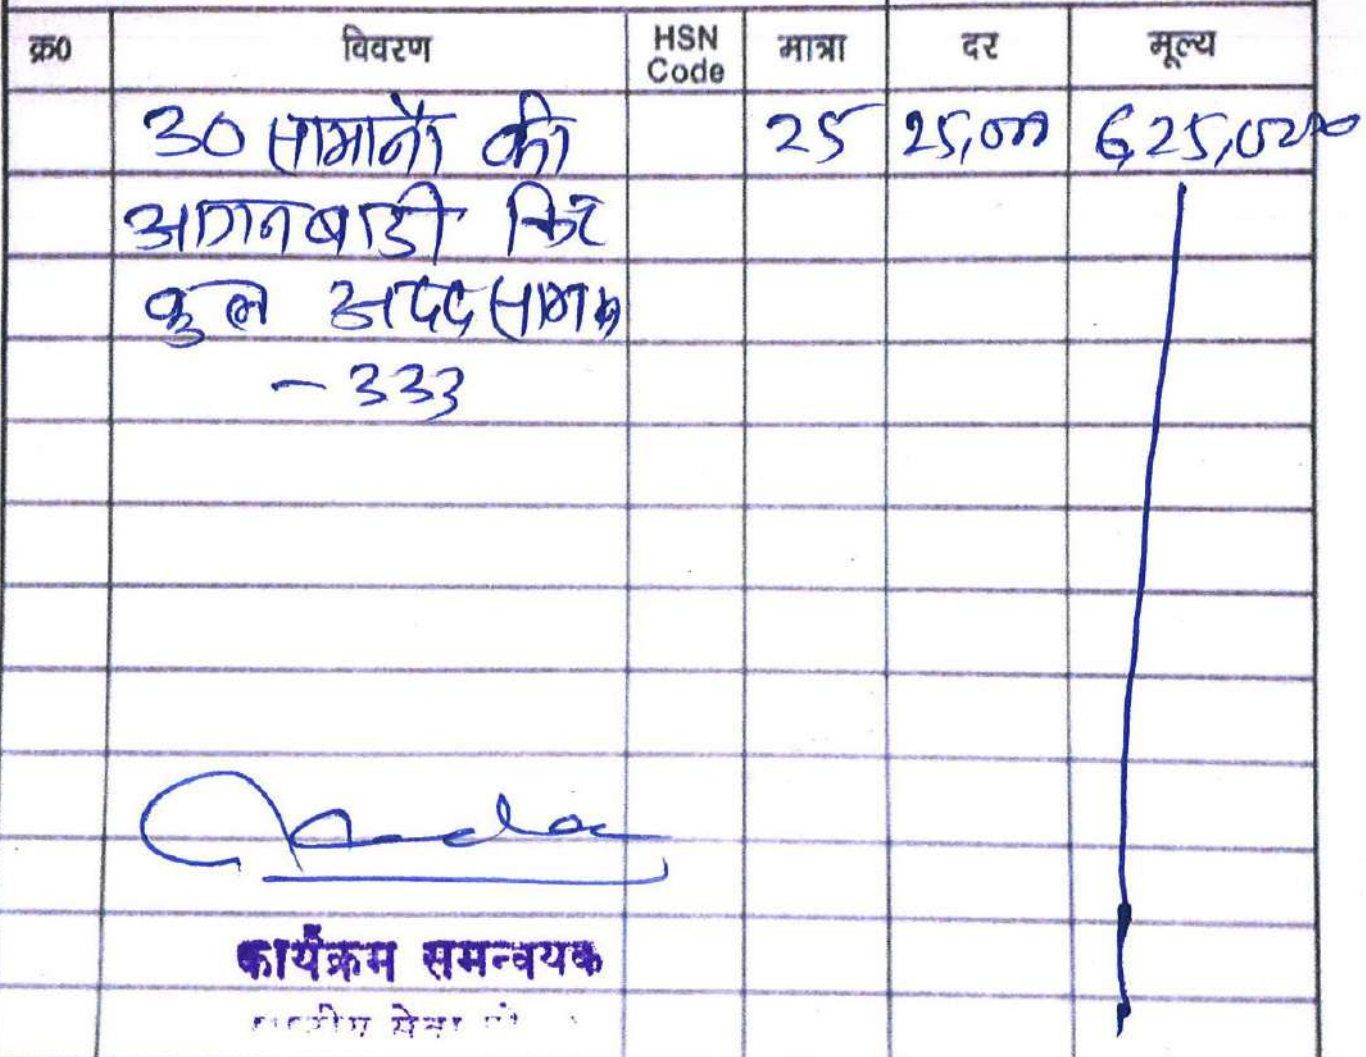 क्र0 विवरण HSN Code मात्रा दर मूल्य
30 सामानों की 25 25,000 6,25,000
आगनबाडी किट
कुल अदद सामान
- 333
कार्यक्रम समन्वयक
सेवा